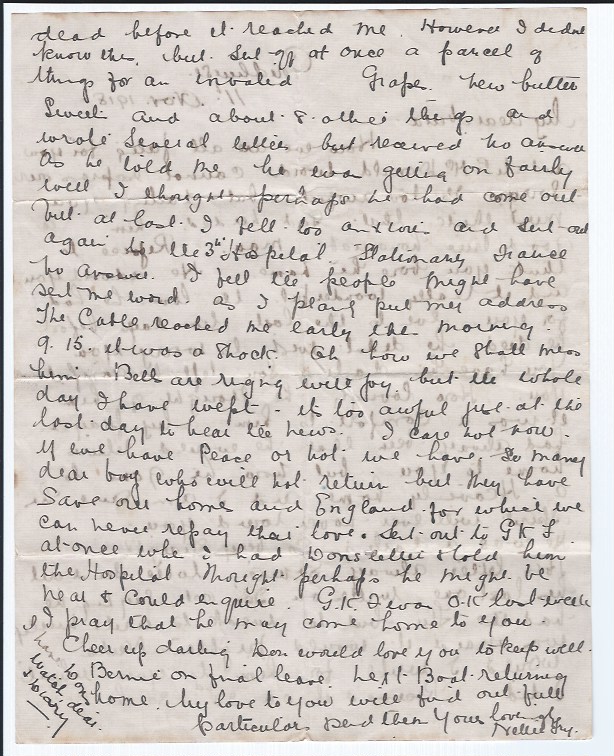 dead before it reached me. However I didnt
know this, but sent off at once a parcel of
things for an Invalid Grapes. New butter
Sweets and about 8 other things and
wrote several letters but received no answer
As he told me he was getting on fairly
well I thought perhaps he had come out
but at last I fell too anxious and sent out
again to the 3rd Hospital Stationary France
no answer. I feel the people might have
sent me word as I plainly put my address
The Cable reached me early this morning.
9.15. it was a shock. Oh how we shall miss
him. Bells are ringing with joy but the whole
day I have wept - its too awful just at the
last day to hear the news. I care not now.
if we have Peace or not we have so many
dear boys who will not return but they have
Save our homes and England for which we
can never repay their love. Sent out to G.K.F.
at once when I had Dons letter & told him
the Hospital thought perhaps he might be
near & could enquire. G.K.F was O.K last week
I pray that he may come home to you.
Cheer up darling Don would love you to keep well.
Bernie on final leave next Boat returning
home. My love to you will find out full
particulars send them Your loving
Nellie
I have
watch dear.
& Diary